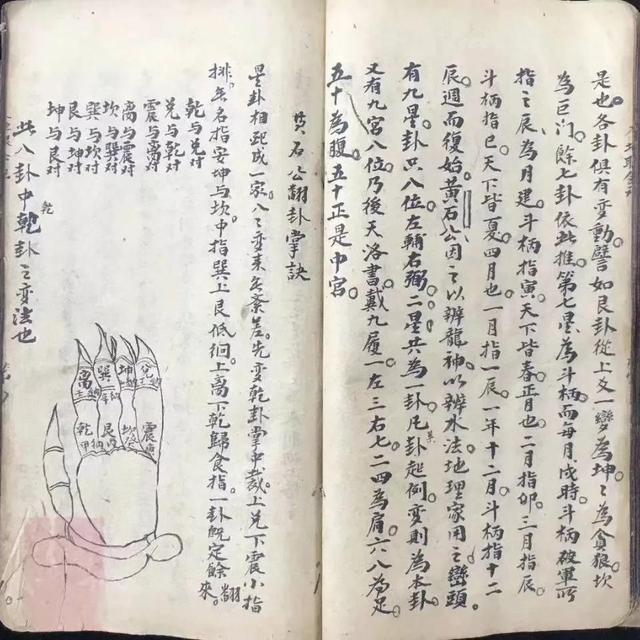 是也各卦俱有变動譬如艮卦從上爻一變為坤々為貪狼坎
為巨门餘七卦依此推第七星為斗柄而每月戌時斗柄破軍所
指之辰為月建斗柄指寅天下皆春正月也二月指卯三月指辰
斗柄指巳天下皆夏四月也一月指一辰一年十二月斗柄指十二
辰週而復始黄石公因之以辨龍神以辨水法地理家用之巒頭
有九星卦只八位左輔右弼二星共為一卦凡卦起例变則為本卦
又有九宫八位乃後天洛書戴九履一左三右七二四為肩六八為足
五十為腹五十正是中宫
黄石公翻卦掌訣
星卦相配成一家八々变来無紊差先变乾卦掌中裁上兑下震小指
排無名指安坤与坎中指巽上艮低徊上离下乾歸食指一卦既定餘翻
來
乾与兑对
兑与乾对
震与离对
离与震对
坎与巽对
巽与坎对
艮与坤对
坤与艮对
此八卦中乾卦之变法也
乾
离
巽
坤
兑
乾甲
艮丙
坎
震